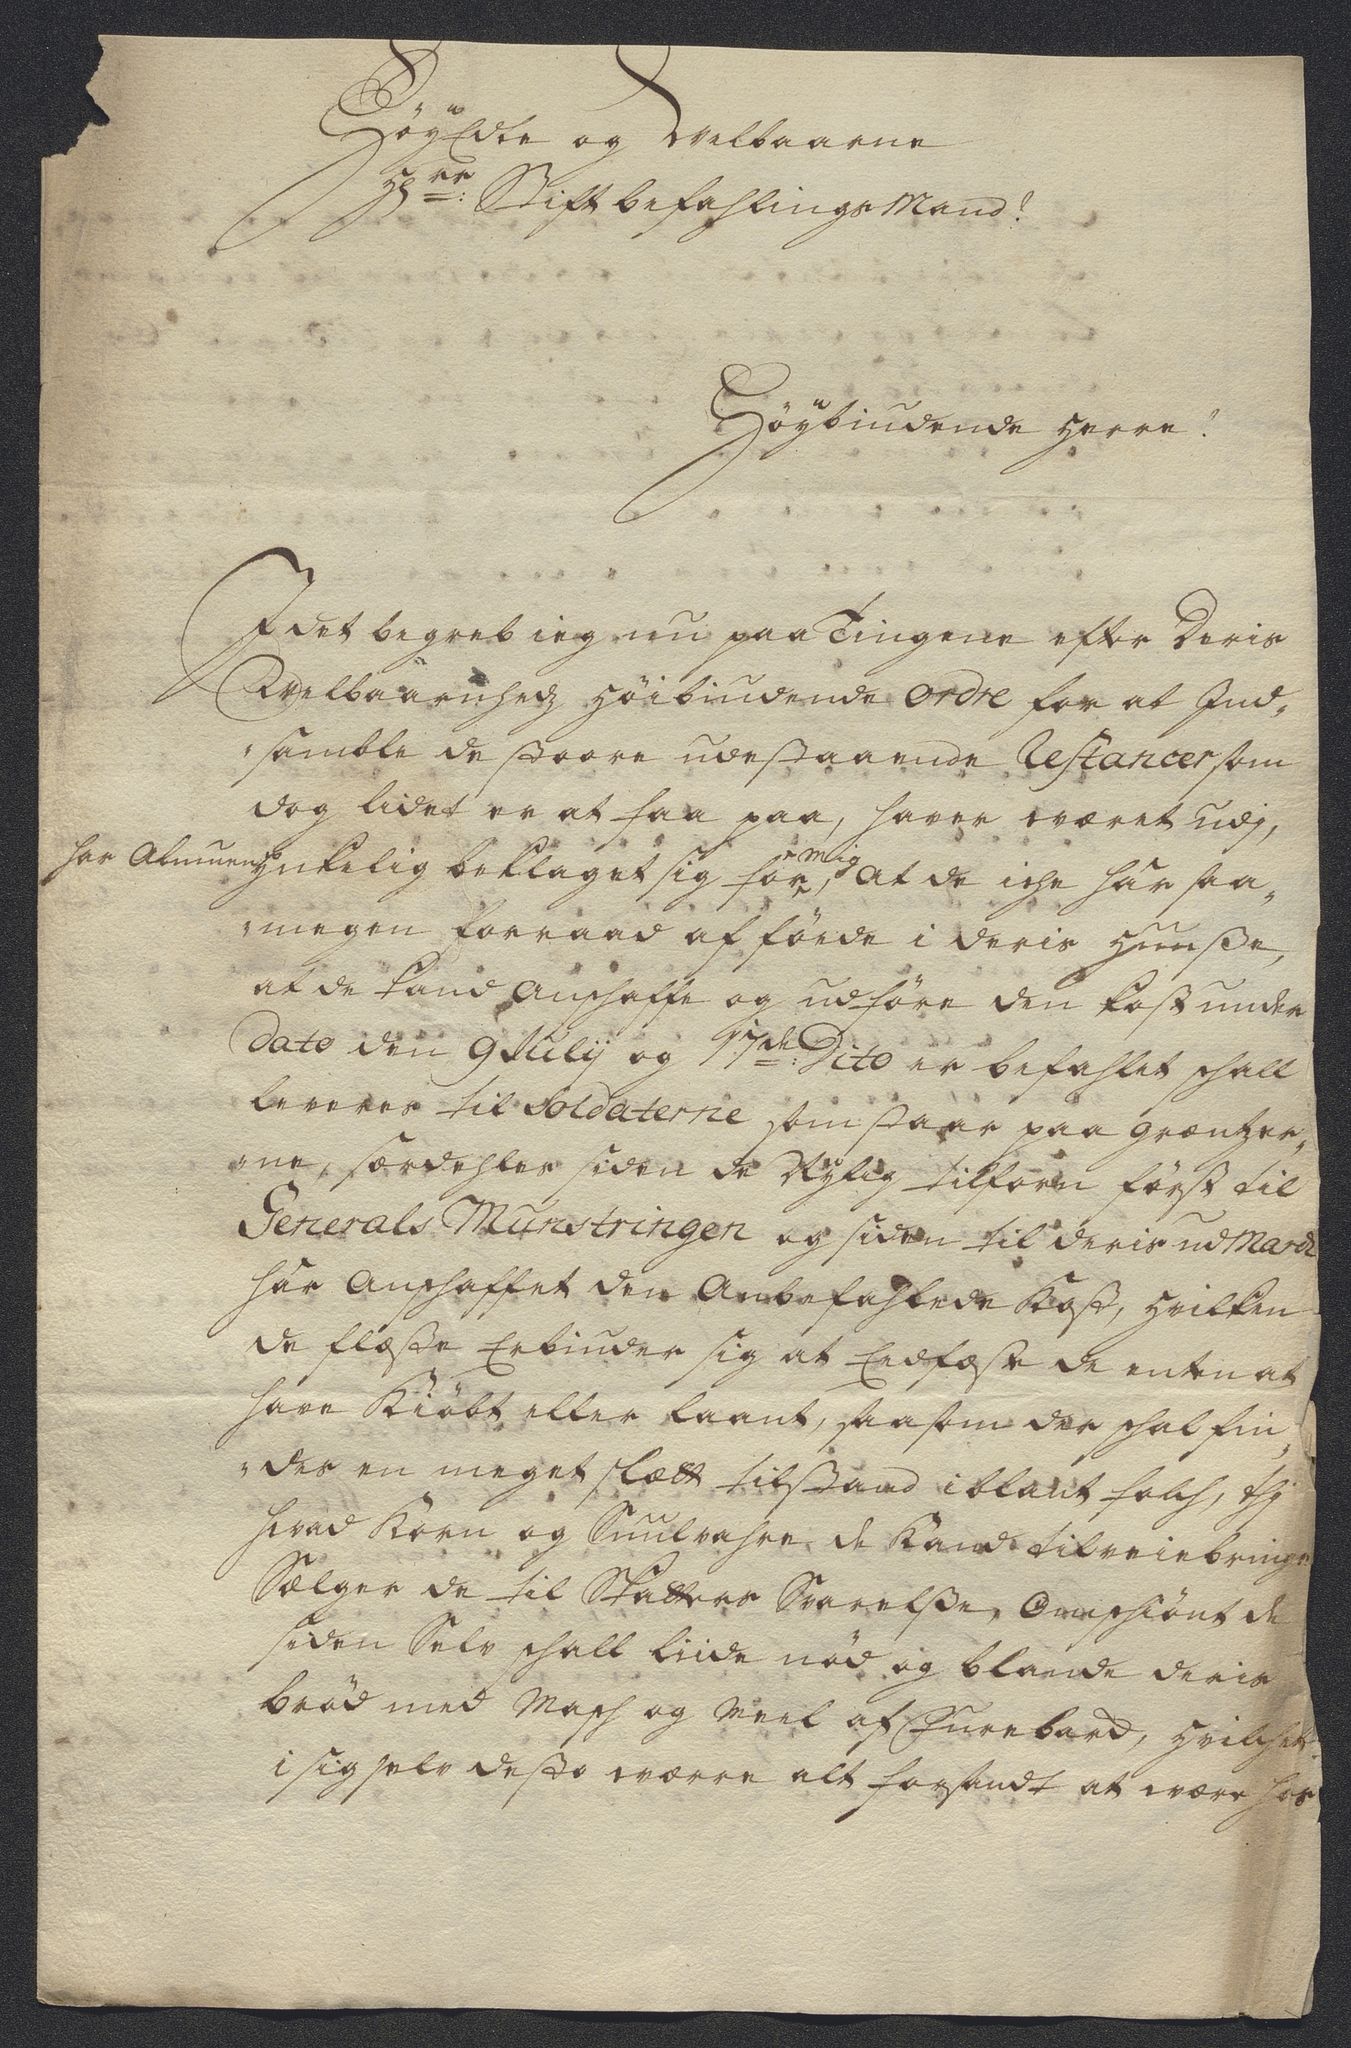 HöyÆdle og Welbaarne
Hr: Stiftbefahlings Mand!
Höybiudende Herre!
I det begreb ieg nu paa Tingene efter Deris
Welbaarnheds Höibiudende Ordre for at Ind-
samble de stoore udestaaende Restancer som
dog lidet er at faa paa, haver været udj,
har Almuen ynkelig beklaget sig for mig, At de iche har saa-
megen forraad af föede i deris Huusse,
at de kand Anschaffe og udföre den kost under
Dato den 9 Julij og 17de: Dito er befahlet schall
leveres til Soldaterne som staar paa Grændtzer-
ne, særdehles siden de Nylig tilforn först til
Generals Munstringen og siden til deris udMarch
har Anschaffet den Anbefahlede Kost, hvilken
de fleste Erbiuder sig at Eedfæste de enten at
have Kiöbt eller laant, saasom der schal fin-
des en meget slett tilstand iblant folch, thj
hvad Korn og Suulvahre de kand tilveiebringe
Sælger de til Skatters Svarelse, Omschiönt de
siden Selv schall liide nöd og blande deris
bröd med Mask og Meel af Furebard, hvilchet
i sig selv desto værre alt forsandt at være hos